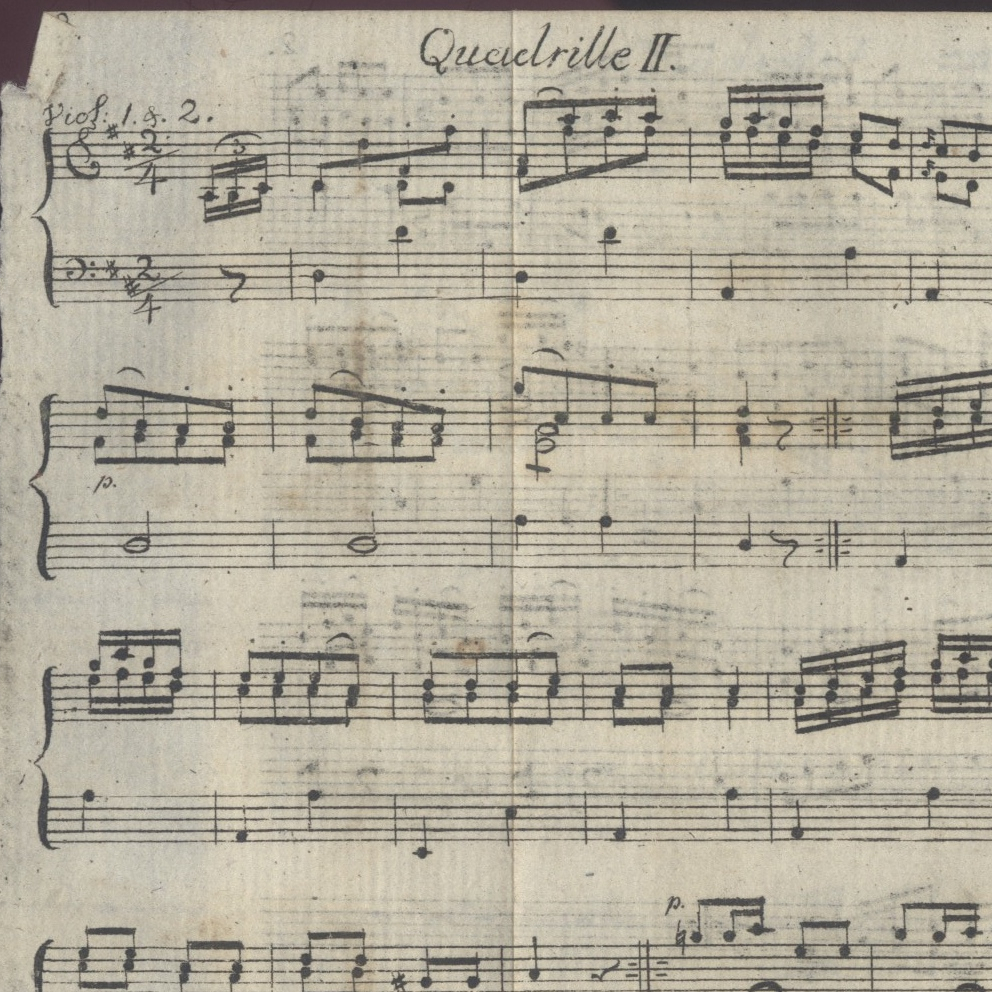 Quadrille II.
Viol: 1. & 2.
2/4
3
2/4
p.
p.